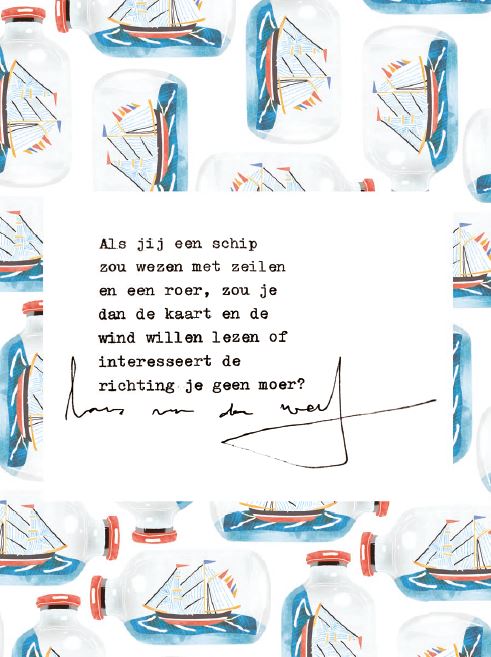 Als jij een schip
zou wezen met zeilen
en een roer, zou je
dan de kaart en de
wind willen lezen of
interesseert de
richting je geen moer?
Lars van der Werf